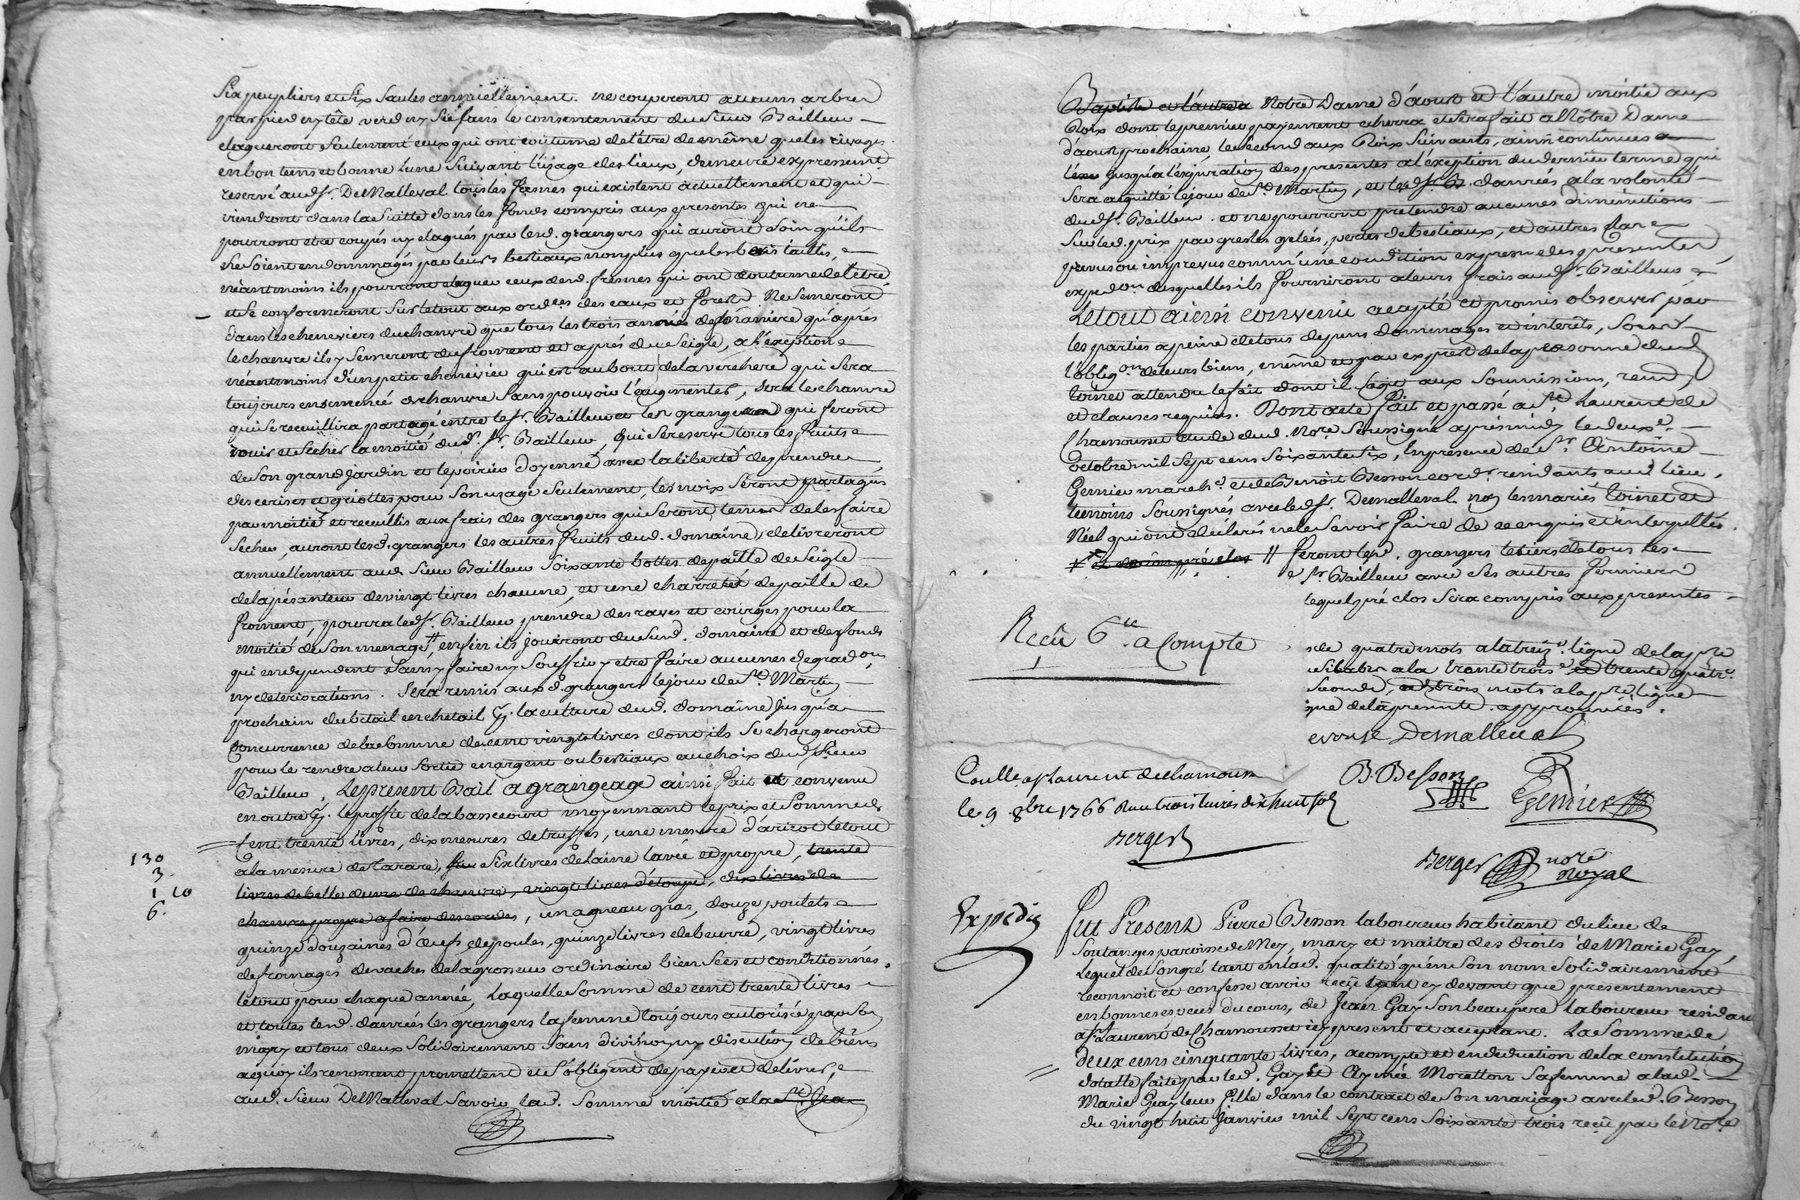 Six peupliers et Six Saules annuellement. ne couperont aucuns arbres
par pied ny tête verd ny Sec sans le consentement du Sieur Bailleur
elagueront Seulement ceux qui ont coutume de l'être de même que les rivages
en bon tems et bonne Lune Suivant l'usage des lieux, demeure expressemt.
reservé aud. Sr. De Malleval tous les fresnes qui existent actuellement et qui
viendront dans la Suitte dans les fonds compris aux presentes qui ne
pourront etre coupés ny elagués par lesd. grangers qui auront Soin qu'ils
ne Soient endommagés par leurs bestiaux non plus que les bois taillis,
néantmoins ils pourront elaguer ceux desd. fresnes qui ont coutume de l'être
et Se conformeront Sur le tout aux ordces des eaux et forest. Ne Semeront
dans les cheneviers du chanvre que tous les trois années de manière qu'après
le chanvre ils y Semeront du froment et après du Seigle, à l'exception
néantmoins d'un petit chenevier qui est au bout de la verchere qui Sera
toujours ensemencé en chanvre Sans pouvoir l'augmenter, Sera le chanvre
qui Se recueillira partagé entre le Sr. Bailleur et les grangers qui feront
rouir et Secher la moitié dud. Sr. Bailleur, qui Se reserve tous les fruits
de Son grand Jardin et le poirier doyenné avec la liberté de prendre
des cerises et griottes pour Son usage Seulement, les noix Seront partagées
par moitié et recueillis aux frais des grangers qui Seront tenus de les faire
Secher, auront lesd. grangers les autres fruits dud. domaine, delivreront
annuellement aud. Sieur Bailleur Soixante bottes de paille de Seigle
de la pesanteur de vingt livres chacune, et une charretée de paille de
froment, pourra led. Sr. Bailleur prendre des raves et courges pour la
moitié de Son menage, # enfin ils jouiront du Susd. domaine et des fonds
qui en dependent Sans y faire ny Souffrir y etre faire aucunes degradons
ny deteriorations. Sera remis auxd. grangers le jour de St. Martin
prochain du bétail en chetail pr. la culture dud. domaine jusqu'à
concurrence de la Somme de cent vingt livres dont ils Se chargeront
pour le rendre a leur Sortie en argent ou bestiaux au choix dud. Sieur
Bailleur. Le present Bail a grangeage ainsi fait et convenu
en outre pr. le proffit de la bassecourt moyennant le prix et Somme de
Cent trente livres, dix mesures de truffes, une mesure d'aricot le tout
130
a la mesure de Tarare, Six livres de laine lavée et propre, trente
3.
livres de belle de chanvre, vingt livres d'étoupe, dix livres de
1. 10
chanvre propre a faire des cordes, un agneau gras, douze poulets
6.
quinze douzaines d'œufs de poules, quinze livres de beurre, vingt livres
de fromages de vaches de la grosseur ordinaire bien Secs et conditionnés.
le tout pour chaque année, Laquelle Somme de cent trente livres
et toutes lesd. danrées les grangers la femme toujours autorisée par Son
mary et tous deux Solidairement Sans division ny discution de biens
a quoy ils renoncent promettent et S'obligent de payer et delivrer,
aud. Sieur De Malleval Savoir lad. Somme moitié a la St. Jean
Baptiste et l'autre a Notre Dame d'aoust et l'autre moitié aux
Roix dont le premier payement echerra et Sera fait a Nôtre Dame
d'aoust prochaine, le Second aux Roix Suivants, ainsi continuer
jusqu'à l'expiration des presentes a l'exception du dernier terme qui
Sera acquitté le jour de St. Martin, et lesd. danrées a la volonté
dud. Sr. Bailleur. et ne pourront pretendre aucunes diminutions
Sur led. prix par gresles gelées, pertes de bestiaux, et autres cas
prevus ou imprevus comme une condition expresse des presentes
expedon. desquelles ils fourniront a leurs frais aud. Sr. Bailleur
Le tout ainsi convenu accepté et promis observer par
les parties a peine de tous depens dommages et interêts, Sous
l'obligon. de leurs biens, même et par exprest de la personne dud.
Toinet attendu le fait dont il S'agit aux Soumissions, renons.
et clauses requises. Dont acte fait et passé a St. Laurent de
Chamousset etude dud. Nore. Soussigné après midy le deuxe.
octobre mil Sept cens Soixante Six, En presence de Sr. Antoine
Gemier march'd. et de Benoit Besson cord'r. residants aud. lieu,
temoins Soussignés avec led. Sr. Demalleval. non les mariés Toinet et
Néel qui ont declarés ne le Savoir faire de ce enquis et interpellés.
# feront lesd. grangers le tiers de tous les
Sr. Bailleur avec Ses autres fermiers
lequel pré clos Sera compris aux presentes
Reçu 6tt. a Compte
de quatre mots a la treize. ligne de la pre
a la trente trois et trente quatre.
Seconde, trois mots a la pre. ligne
de la presente. approuvées.
Demalleval
Conllé a St Laurent de chamousset
le 9 8bre 1766 Reçu trois livres dix huit Sols
Berger
B. Besson
Gemier
Berger nore
Royal
Expédié
Fut Present Pierre Besson laboureur habitant du lieu de
Soulanges paroisse de Mey, mary et maitre des droits de Marie Gay,
Lequel de Son gré tant en lad. qualité qu'en Son nom Solidairement
reconnoit et confesse avoir reçu tant cy devant que presentement
en bonnes especes du cours, de Jean Gay Son beaupere laboureur residant
a St Laurent de Chamousset icy present et acceptant. La Somme de
deux cens cinquante Livres, a compte et en deduction de la constitution
dotalle faitte par led. Gay et Aymée Moretton Sa femme a lad.
Marie Gay leur fille dans le contract de Son mariage avec led. Besson
du vingt huit Janvier mil Sept cens Soixante trois reçu par le Nore.